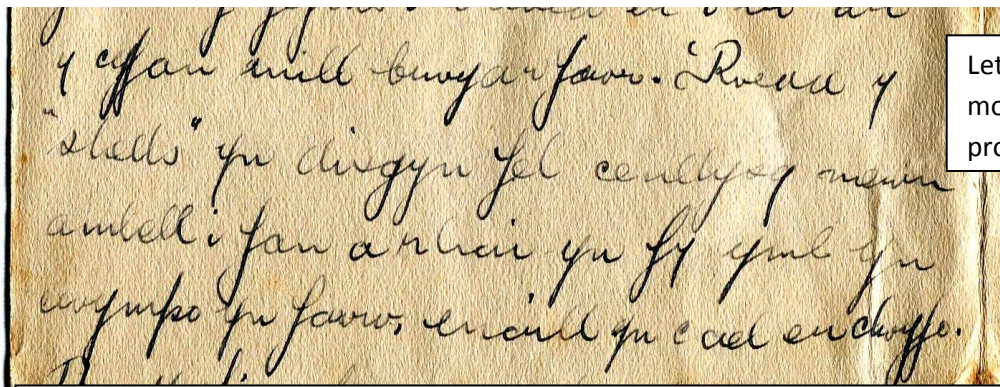 y 'Roedd y
"shells" yn disgyn fel cenllysg mewn
ambell i fan a rhai yn fy ymyl yn
cwympo yn farw, eraill yn cael eu clwyfo.
Let
mo
pro